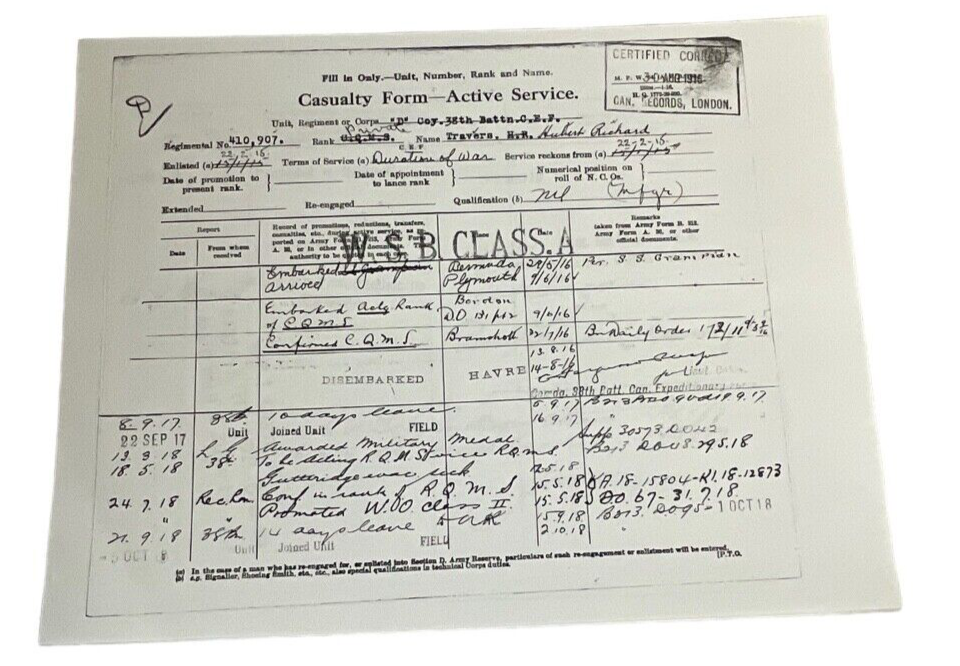 CERTIFIED CORRECT
30 AUG 1916
CAN. RECORDS, LONDON.
Fill in Only.—Unit, Number, Rank and Name.
Casualty Form—Active Service.
Unit, Regiment or Corps "D" Coy. 38th Battn. C.E.F.
Private
Regimental No. 410,907. Rank C.Q.M.S. Name Travers, H.R. Hubert Richard
C E F
22-2-15. 22-2-15
Enlisted (a) Terms of Service (a) Duration of War Service reckons from (a)
Date of promotion to present rank. Date of appointment to lance rank Numerical position on roll of N.C.Os.
Extended Re-engaged Qualification (b) Nil (Mfgr)
Report
Date From whom received
Record of promotions, reductions, transfers, casualties, etc., during active service, as reported on Army Form B. 213, Army Form A. 36, or in other official documents. The authority to be quoted in each case.
Place Date
Remarks taken from Army Form B. 213, Army Form A. 36, or other official documents.
W.S.B. CLASS.A
Embarked Bermuda 29/5/16 Per. S.S. Grampian
Arrived Plymouth 9/6/16
Embarked Actg Rank Bordon
of C.Q.M.S 9/6/16
Confirmed C.Q.M.S. Bramshott 22/7/16 Bn Daily Order
13.8.16
DISEMBARKED HAVRE 14-8-16
Comdg. 38th Batt. Can. Expeditionary
8.9.17. 38th 10 days leave. 5.9.17
22 SEP 17 Unit Joined Unit FIELD 16.9.17
13.3.18 L G Awarded Military Medal Supp 30573
18.5.18 38th To be Acting R.Q.M.S vice R.Q.M.S
Gutteridge evac sick 12.5.18
24.7.18 Rec Lon Conf in rank of R.Q.M.S. 15.5.18 A.18-15804-K1.18-12873
" Promoted W.O Class II 15.5.18 DO.67-31.7.18
21.9.18 38th 14 days leave to UK 15.9.18 1 OCT 18
OCT 18 Unit Joined Unit FIELD 2.10.18
(a) In the case of a man who has re-engaged for, or enlisted into Section D. Army Reserve, particulars of such re-engagement or enlistment will be entered.
(b) e.g. Signaller, Shoeing Smith, etc., etc., also special qualifications in technical Corps duties.
[P.T.O.